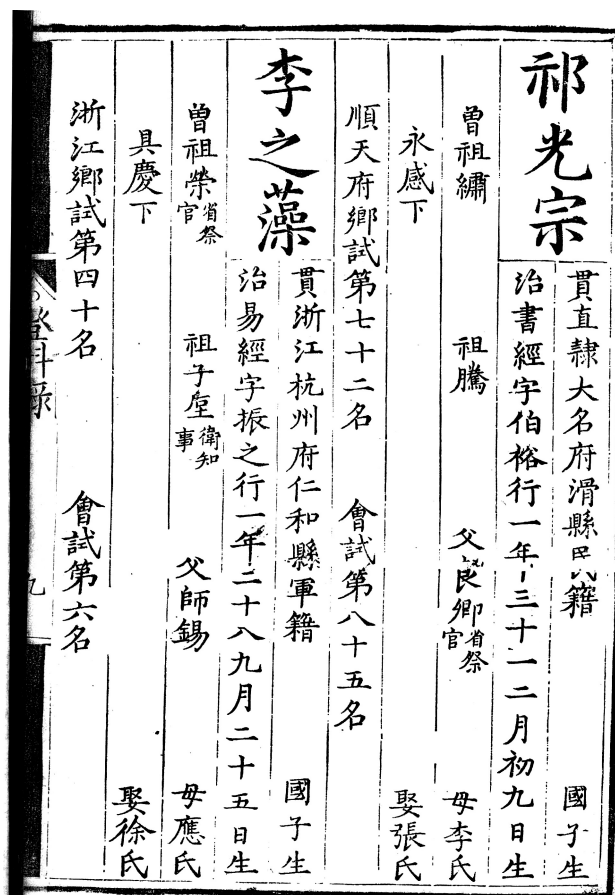 祁光宗
貫直隸大名府滑縣民籍 國子生
治書經字伯裕行一年三十一二月初九日生
曾祖繡 祖騰 父良卿省祭官 母李氏
永感下 娶張氏
順天府鄉試第七十二名 會試第八十五名
李之藻
貫浙江杭州府仁和縣軍籍 國子生
治易經字振之行一年二十八九月二十五日生
曾祖榮省祭官 祖子堂衛知事 父師錫 母應氏
具慶下 娶徐氏
浙江鄉試第四十名 會試第六名
登科錄
九